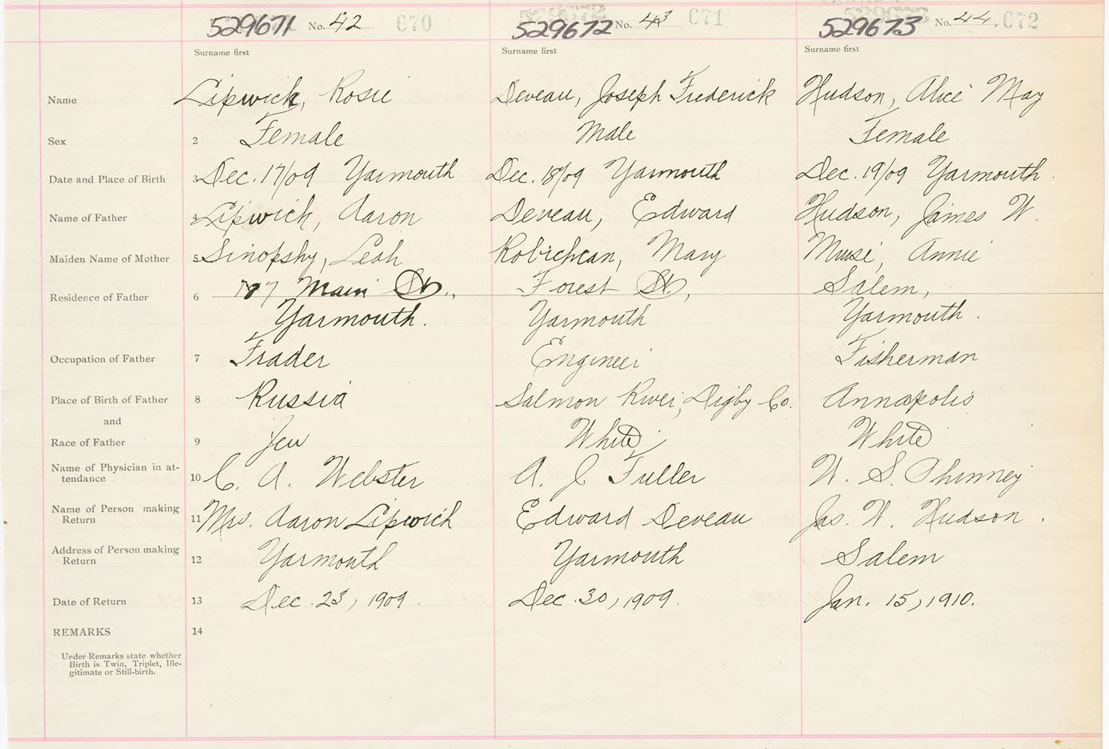 529671 No. 42 C70 529672 No. 43 C71 529673 No. 44. C72
Surname first Surname first Surname first
Name Lipwich, Rosie Deveau, Joseph Frederick Hudson, Alice May
Sex 2 Female Male Female
Date and Place of Birth 3 Dec. 17/09 Yarmouth Dec. 18/09 Yarmouth Dec. 19/09 Yarmouth.
Name of Father Lipwich, Aaron Deveau, Edward Hudson, James W.
Maiden Name of Mother 5 Sinopshy, Leah Robichcan, Mary Muse, Annie
Residence of Father 6 Main St., Forest St, Salem,
Yarmouth. Yarmouth Yarmouth.
Occupation of Father 7 Trader Engineer Fisherman
Place of Birth of Father 8 Russia Salmon River, Digby Co. Annapolis
and
Race of Father 9 Jew White White
Name of Physician in at-
tendance 10 C. A. Webster A. J. Fuller W. S. Phinney
Name of Person making
Return 11 Mrs. Aaron Lipwich Edward Deveau Jas. W. Hudson.
Address of Person making
Return 12 Yarmouth Yarmouth Salem
Date of Return 13 Dec. 23, 1909. Dec. 30, 1909. Jan. 15, 1910.
REMARKS 14
Under Remarks state whether
Birth is Twin, Triplet, Ille-
gitimate or Still-birth.